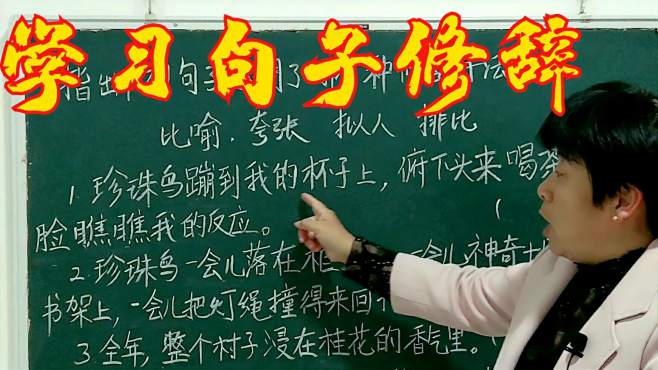 学习句子修辞
指出 句子 了 种
比喻. 夸张 拟人 排比
1. 珍珠鸟蹦到我的杯子上, 俯下头来喝茶
脸瞧瞧我的反应。 (
2. 珍珠鸟一会儿落在柜 一会儿神奇
书架上, 一会儿把灯绳撞得来回
3. 全年, 整个村子浸在桂花的香气里。